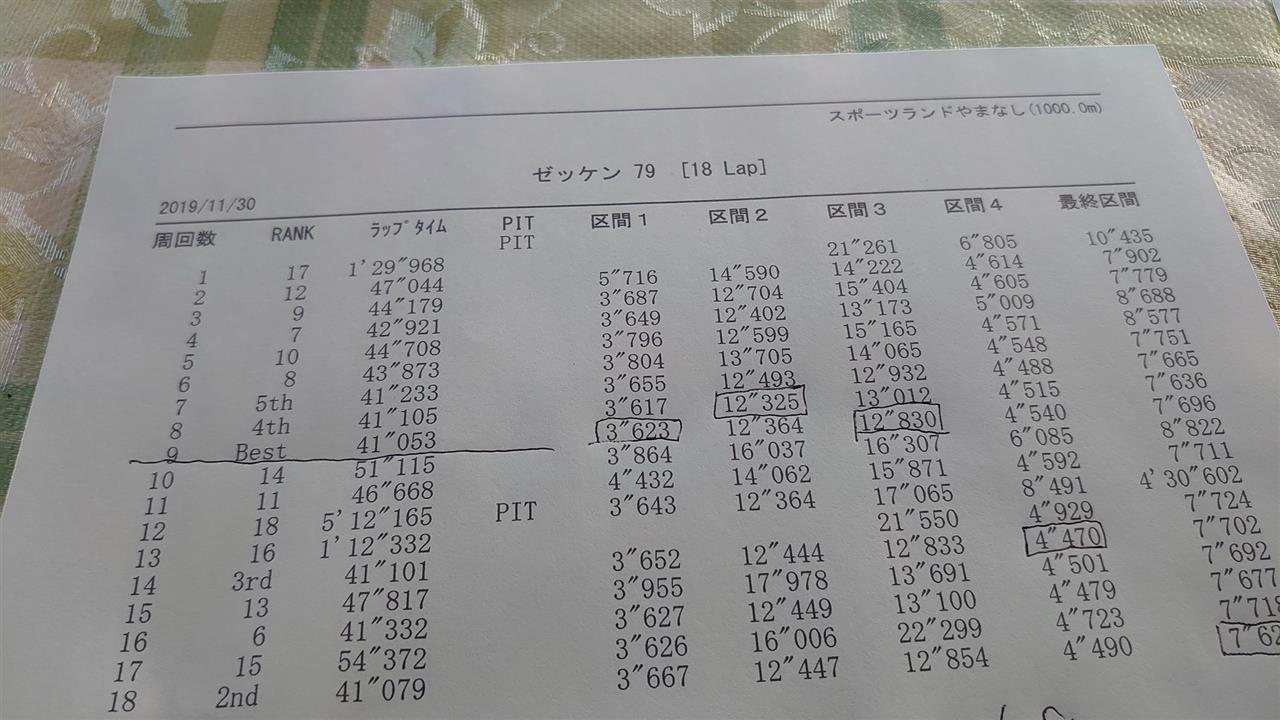 スポーツランドやまなし(1000.0m)
ゼッケン 79 [18 Lap]
2019/11/30
周回数 RANK ﾗｯﾌﾟﾀｲﾑ PIT 区間1 区間2 区間3 区間4 最終区間
1 17 1'29"968 PIT 21"261 6"805 10"435
2 12 47"044 5"716 14"590 14"222 4"614 7"902
3 9 44"179 3"687 12"704 15"404 4"605 7"779
4 7 42"921 3"649 12"402 13"173 5"009 8"688
5 10 44"708 3"796 12"599 15"165 4"571 8"577
6 8 43"873 3"804 13"705 14"065 4"548 7"751
7 5th 41"233 3"655 12"493 12"932 4"488 7"665
8 4th 41"105 3"617 12"325 13"012 4"515 7"636
9 Best 41"053 3"623 12"364 12"830 4"540 7"696
10 14 51"115 3"864 16"037 16"307 6"085 8"822
11 11 46"668 4"432 14"062 15"871 4"592 7"711
12 18 5'12"165 3"643 12"364 17"065 8"491 4'30"602
13 16 1'12"332 PIT 21"550 4"929 7"724
14 3rd 41"101 3"652 12"444 12"833 4"470 7"702
15 13 47"817 3"955 17"978 13"691 4"501 7"692
16 6 41"332 3"627 12"449 13"100 4"479 7"677
17 15 54"372 3"626 16"006 22"299 4"723 7"718
18 2nd 41"079 3"667 12"447 12"854 4"490